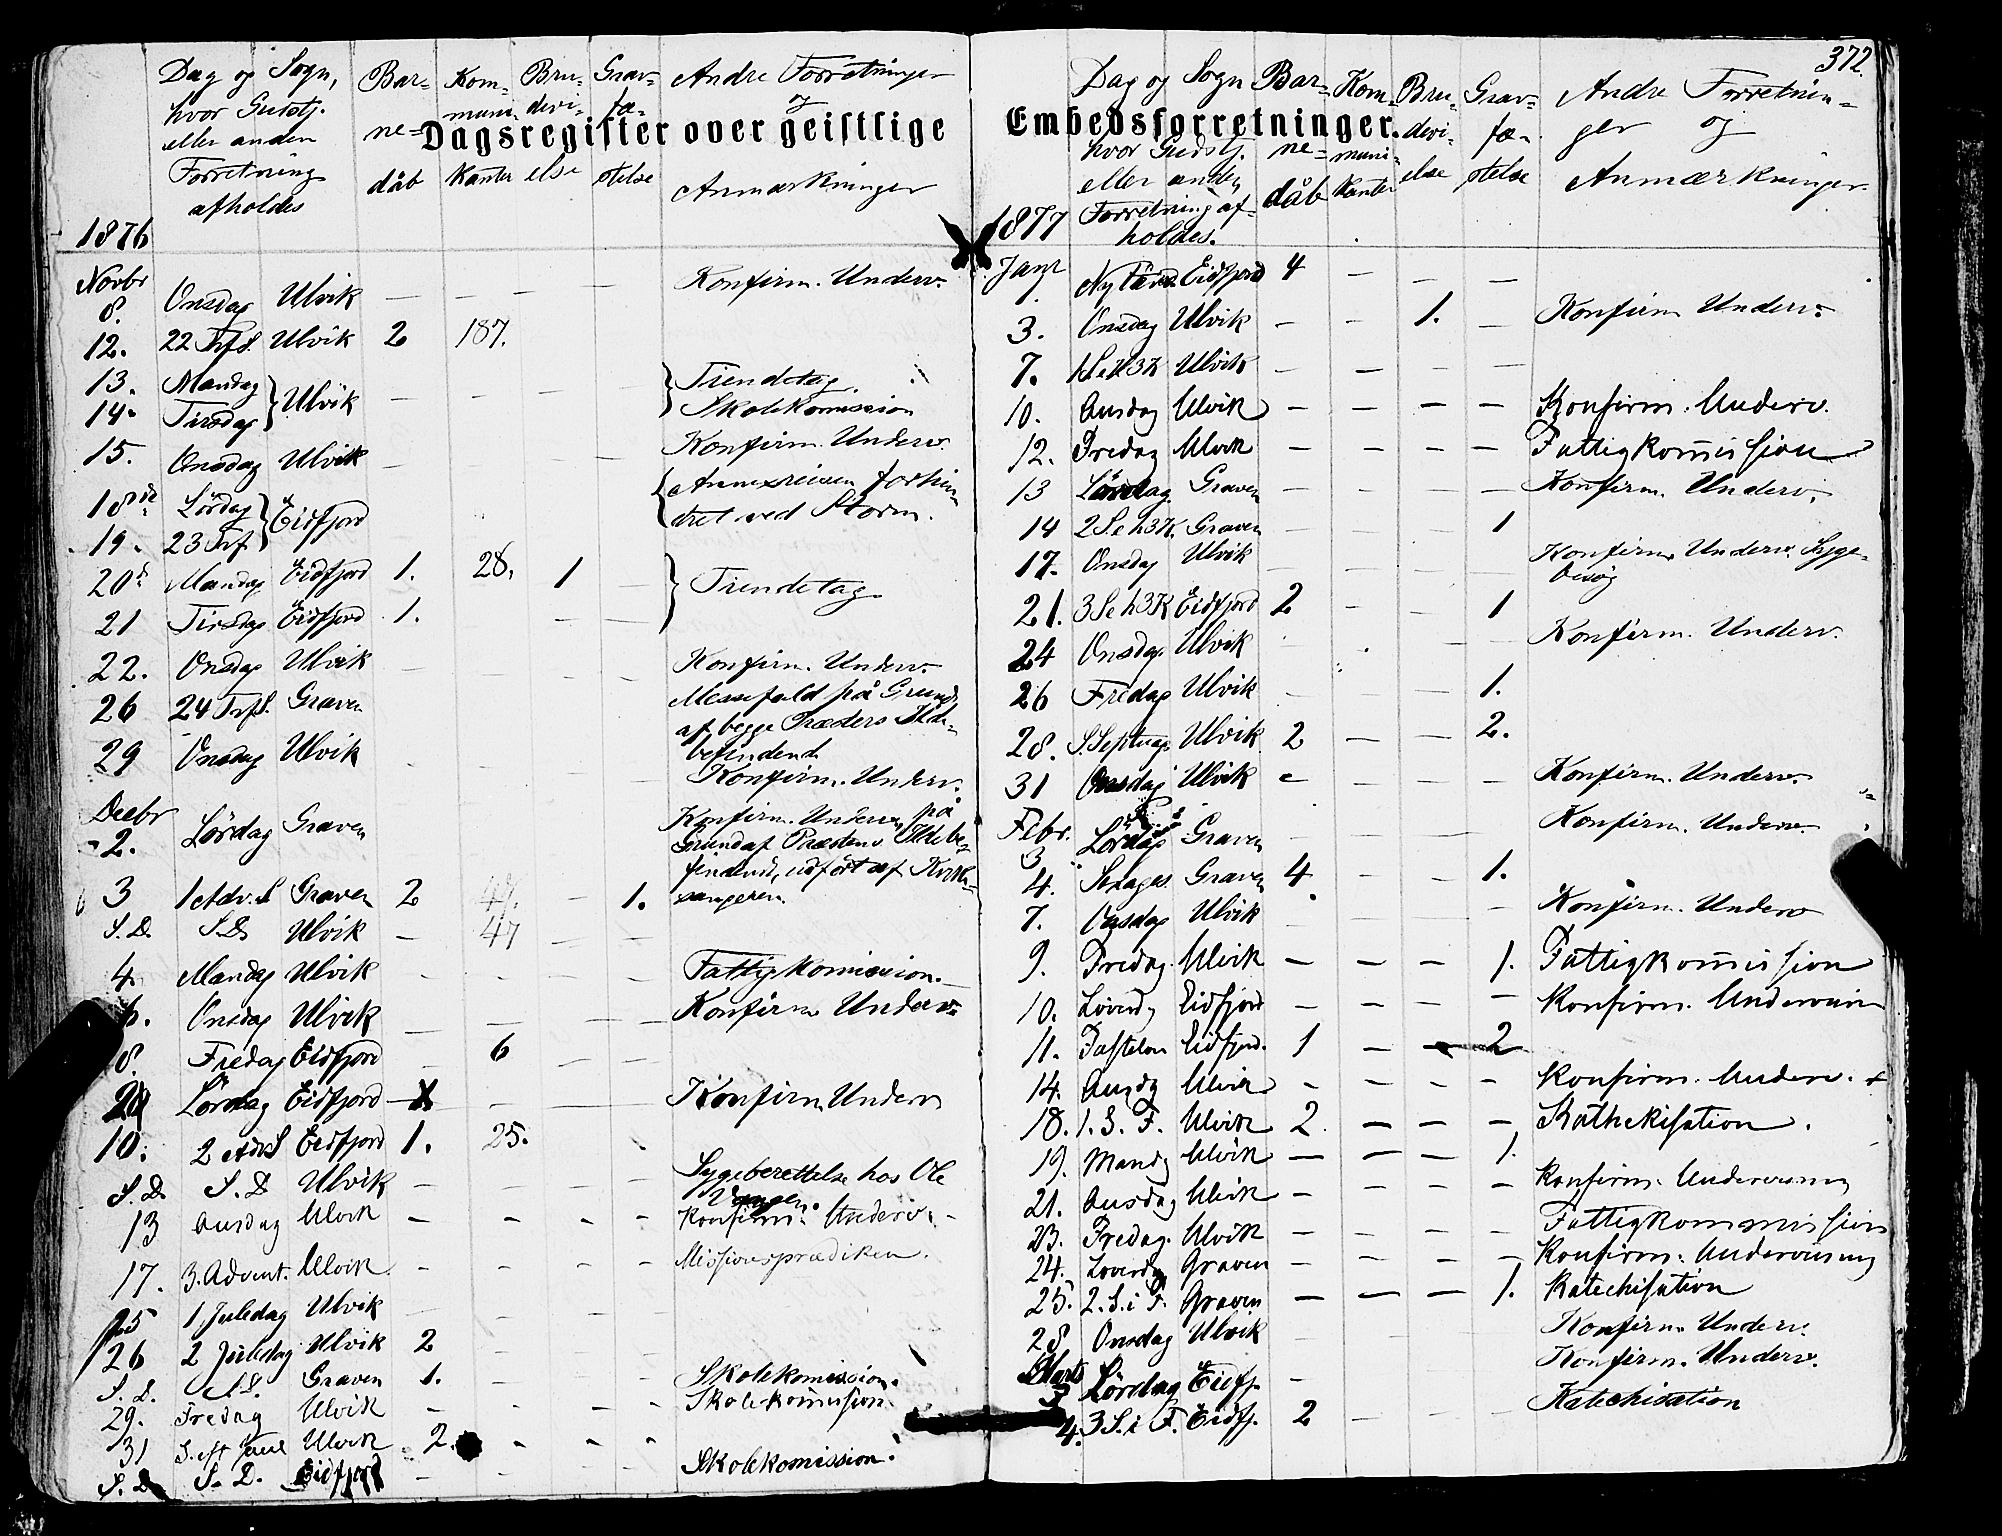 372
Dagsregister over geistlige Embedsforretninger.
Dag og Sogn, hvor Gudstj. eller anden Forretning afholdes | Barnedåb | Kommunikanter | Brudevielse | Gravfæstelse | Andre Forretninger og Anmærkninger
1876
Novbr
8. Onsdag Ulvik — — — — Konfirm. Underv.
12. 22 Trf S. Ulvik 2 187.
13. Mandag } Ulvik — — — — } Tiendetag.
14. Tirsdag } Skolekomission
15. Onsdag Ulvik — — Konfirm. Underv.
18de Lördag } Eidfjord { Annexreisen forhin
19. 23 Trf } dret ved Storm.
20d Mandag Eidfjord 1. 28. 1 } Tiendetag
21 Tirsdag Eidfjord 1. — —
22. Onsdag Ulvik — — — — Konfirm. Underv.
26 24 Trf S. Graven Messefald på Grund
af begge Præsters Ilde-
befindende
29 Onsdag Ulvik Konfirm. Underv.
Decbr
2. Lördag Graven Konfirm. Underv. på
Grund af Præstens Ildebe-
findende, udfört af Kirke-
sangeren.
3 1 Adv. S Graven 2 47. — 1.
S. D. S. D. Ulvik — 47 — —
4. Mandag Ulvik - - - - Fattigkomission.
6. Onsdag Ulvik — — — — Konfirm Underv.
8. Fredag Eidfjord — 6 — —
Lördag Eidfjord — — — Konfirm. Underv
10. 2 Adv S Eidfjord 1. 25.
S. D. S. D Ulvik — — — — Sygeberettelse hos Ole
Vangen.
13 Onsdag Ulvik - - - - Konfirm. Underv.
17. 3. Advent. Ulvik - - - - Missionsprædiken.
25 1 Juledag Ulvik — — — —
26 2 Juledag Ulvik 2 — — —
S. D. S. D. Graven 1. - - - Skolekomission.
29. Fredag Ulvik - - - - Skolekomission
31 S. eft Juul Ulvik 2. - - -
S. D. S. D. Eidfjord - - - - Skolekomission.
Dag og Sogn hvor Gudstj. eller anden Forretning afholdes. | Barnedåb | Kommunikanter | Brudevielse | Gravfæstelse | Andre Forretninger og Anmærkninger
1877
Janr
1. Nytårsd. Eidfjord 4 — — —
3. Onsdag Ulvik — — 1. — Konfirm Underv.
7. 1 S e H 3 K Ulvik — — — —
10. Onsdag Ulvik — — — — Konfirm. Underv.
12. Fredag Ulvik — — — — Fattigkomission
13 Lördag. Graven — — — — Konfirm. Underv.
14 2 S. e h 3 K. Graven — — — 1
17. Onsdag Ulvik — — — — Konfirm. Underv. Syge-
besøg
21. 3 S e h 3 K Eidfjord 2 - — 1
24 Onsdag Ulvik Konfirm. Underv.
26 Fredag Ulvik — — 1.
28. S. Septuag. Ulvik 2 — — 2.
31 Onsdag Ulvik — — — — Konfirm. Underv.
Febr.
3 Lördag Graven — — — — Konfirm. Underv.
4. Sexages. Graven 4 - - 1.
7. Onsdag Ulvik — — — — Konfirm. Underv
9. Fredag. Ulvik — — — 1. Fattigkomission
10. Løverdg Eidfjord — — — — Konfirm. Underviisn
11. Fastelavn Eidfjord. 1 — — 2
14. Onsdg Ulvik — — — — Konfirm. Underv.
18. 1. S. F. Ulvik 2. — — — Kathekisation.
19. Mandg Ulvik — — — 1.
21. Onsdag Ulvik — — — — Konfirm. Undervisning
23. Fredag. Ulvik — — — — Fattigkommission
24. Løverdg Graven — — — — Konfirm. Undervisning
25. 2. S. i F. Graven — — — 1. Katechisation
28 Onsdag Ulvik Konfirm. Underv.
Marts
3 Lördag Eidfj. — Konfirm. Underv.
4. 3 S. i F. Eidfj. 2 — — — Katechisation